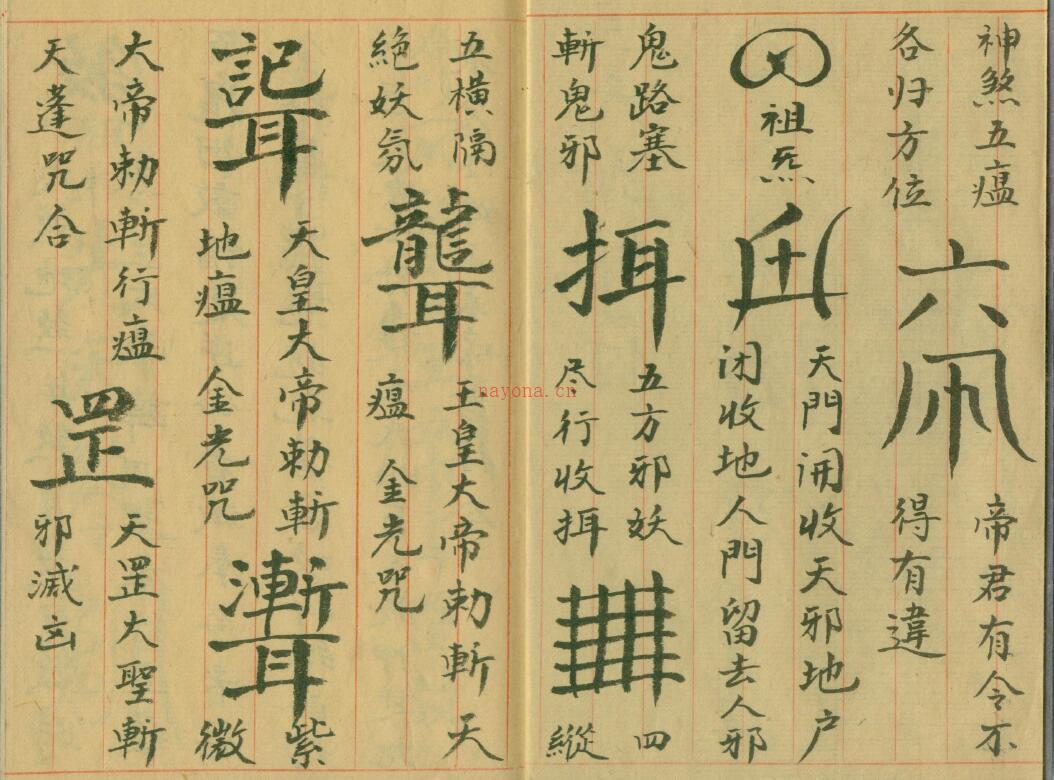 神煞五瘟
各归方位
六
帝君有令不
得有違
祖炁
天門開收天邪地户
闭收地人門留去人邪
鬼路塞
斬鬼邪
挕
五方邪妖
尽行收挕
四
縱
五横隔
絶妖氛
王皇大帝勅斬天
瘟 金光咒
天皇大帝勅斬
地瘟 金光咒
紫
微
大帝勅斬行瘟
天蓬咒合
罡
天罡大聖斬
邪滅凶
nayona.cn